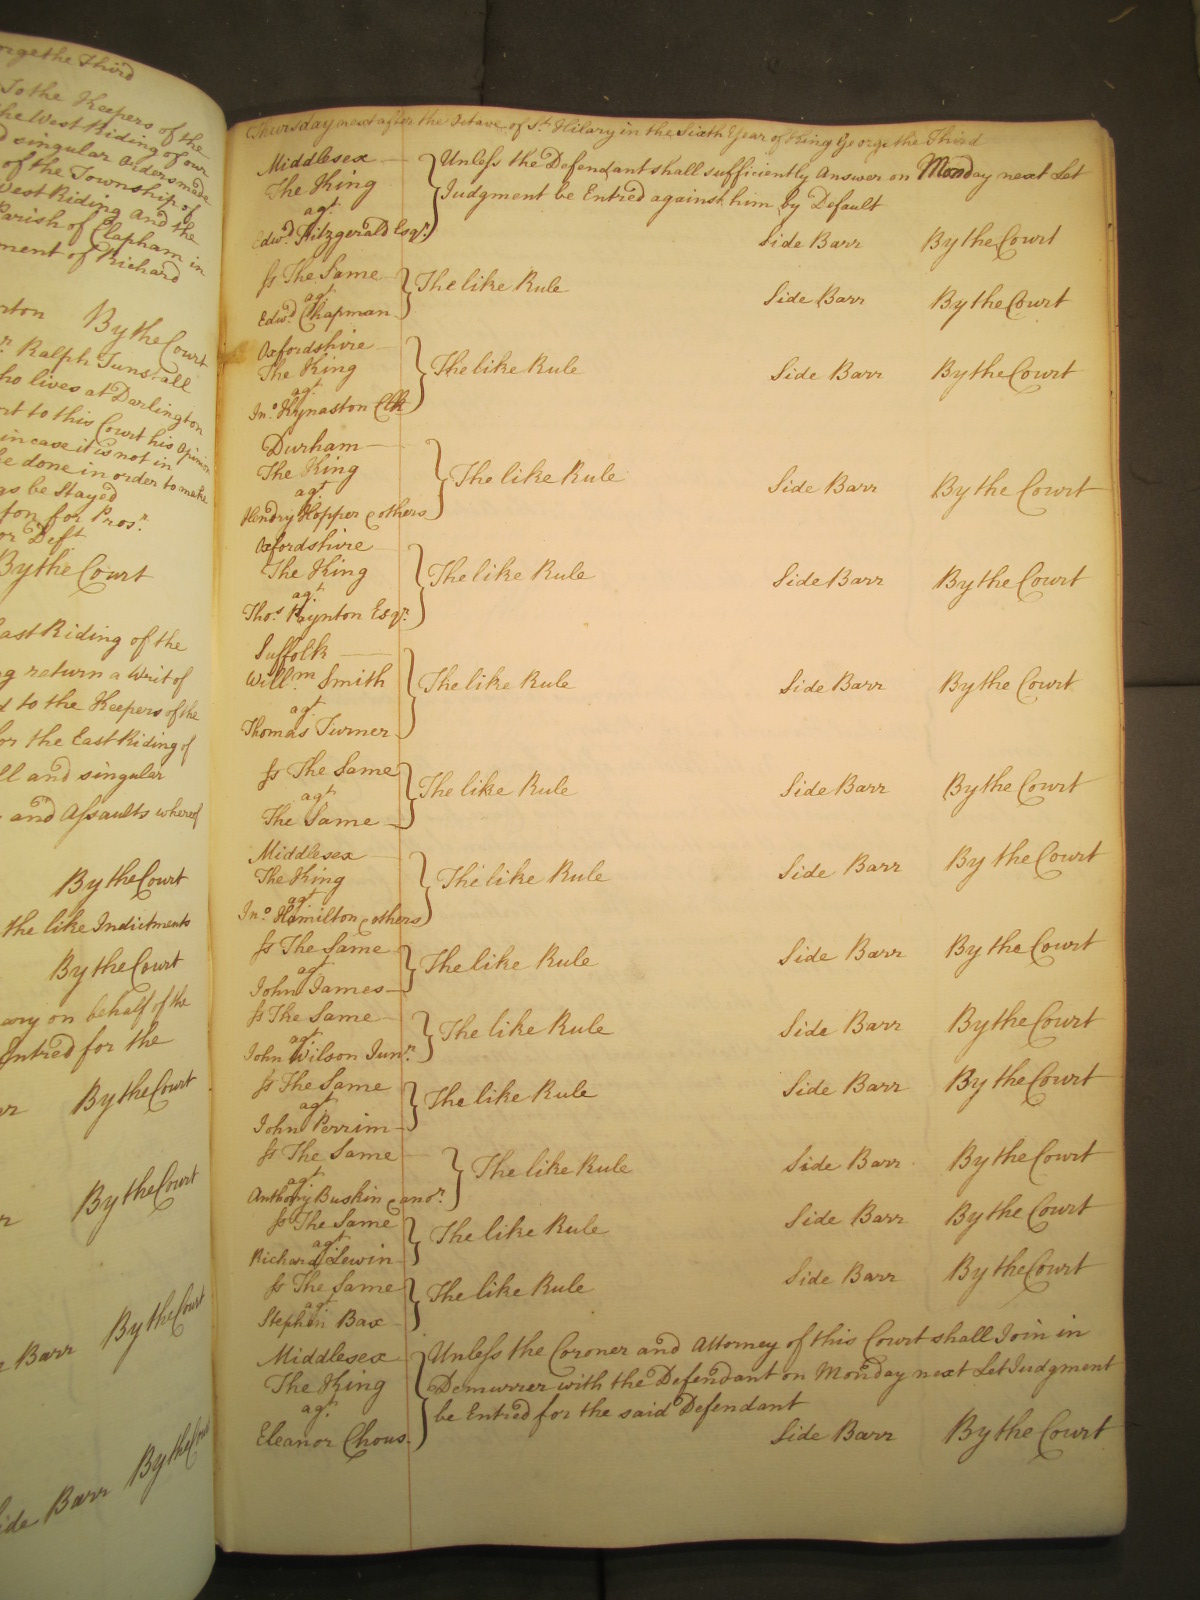 orge the Third
To the Keepers of the
the West Riding of our
d singular Orders made
of the Township of
West Riding and the
Parish of Clapham in
ment of Richard
rton By the Court
r. Ralph Tunstall
ho lives at Darlington
rt to this Court his Opinion
in case it is not in
be done in order to make
gs be Stayed
ton for Pros.r
or Def.t
By the Court
East Riding of the
g return a Writ of
d to the Keepers of the
for the East Riding of
ll and singular
and Assaults whereof
By the Court
the like Indictments
By the Court
ary on behalf of the
Entred for the
By the Court
By the Court
Barr By the Court
Side Barr By the Court
Thursday next after the Octave of St. Hilary in the Sixth Year of King George the Third
Middlesex
The King
agt.
Edwd. Fitzgerald Esqr.
Unless the Defendant shall sufficiently Answer on Monday next Let
Judgment be Entred against him by Default
Side Barr By the Court
Ss The Same
agt.
Edwd. Chapman
The like Rule Side Barr By the Court
Oxfordshire
The King
agt.
Jno. Kynaston Clk
The like Rule Side Barr By the Court
Durham
The King
agt.
Hendry Hopper & others
The like Rule Side Barr By the Court
Oxfordshire
The King
agt.
Thos. Paynton Esqr.
The like Rule Side Barr By the Court
Suffolk
Willm. Smith
agt.
Thomas Turner
The like Rule Side Barr By the Court
Ss The Same
agt.
The Same
The like Rule Side Barr By the Court
Middlesex
The King
agt.
Jno. Hamilton & others
The like Rule Side Barr By the Court
Ss The Same
agt.
John James
The like Rule Side Barr By the Court
Ss The Same
agt.
John Wilson Junr.
The like Rule Side Barr By the Court
Ss The Same
agt.
John Perrim
The like Rule Side Barr By the Court
Ss The Same
agt.
Anthony Buskin & anor.
The like Rule Side Barr By the Court
Ss The Same
agt.
Richard Lewin
The like Rule Side Barr By the Court
Ss The Same
agt.
Stephen Bax
The like Rule Side Barr By the Court
Middlesex
The King
agt.
Eleanor Chous
Unless the Coroner and Attorney of this Court shall Join in
Demurrer with the Defendant on Monday next Let Judgment
be Entred for the said Defendant
Side Barr By the Court